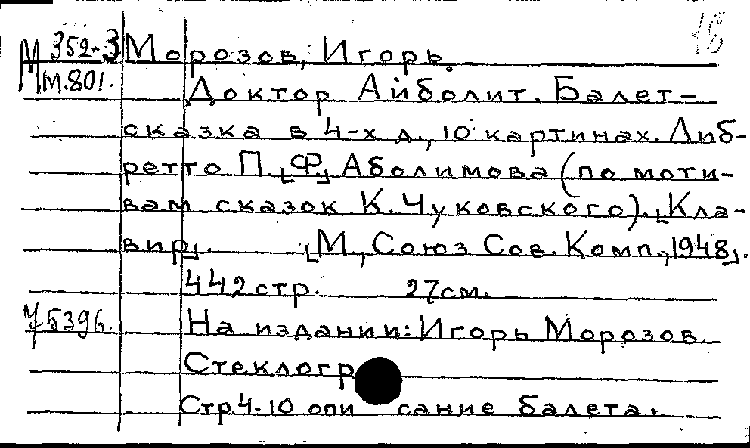 М 352-3 Морозов, Игорь.
М.801. Доктор Айболит. Балет-
сказка в 4-х д., 10 картинах. Либ-
ретто П. [Ф] Аболимова (по моти-
вам сказок К. Чуковского). [Кла-
вир]. [М., Союз Сов. Комп., 1948].
442 стр. 27 см.
На издании: Игорь Морозов.
Стеклогр
Стр. 4-10 описание балета.